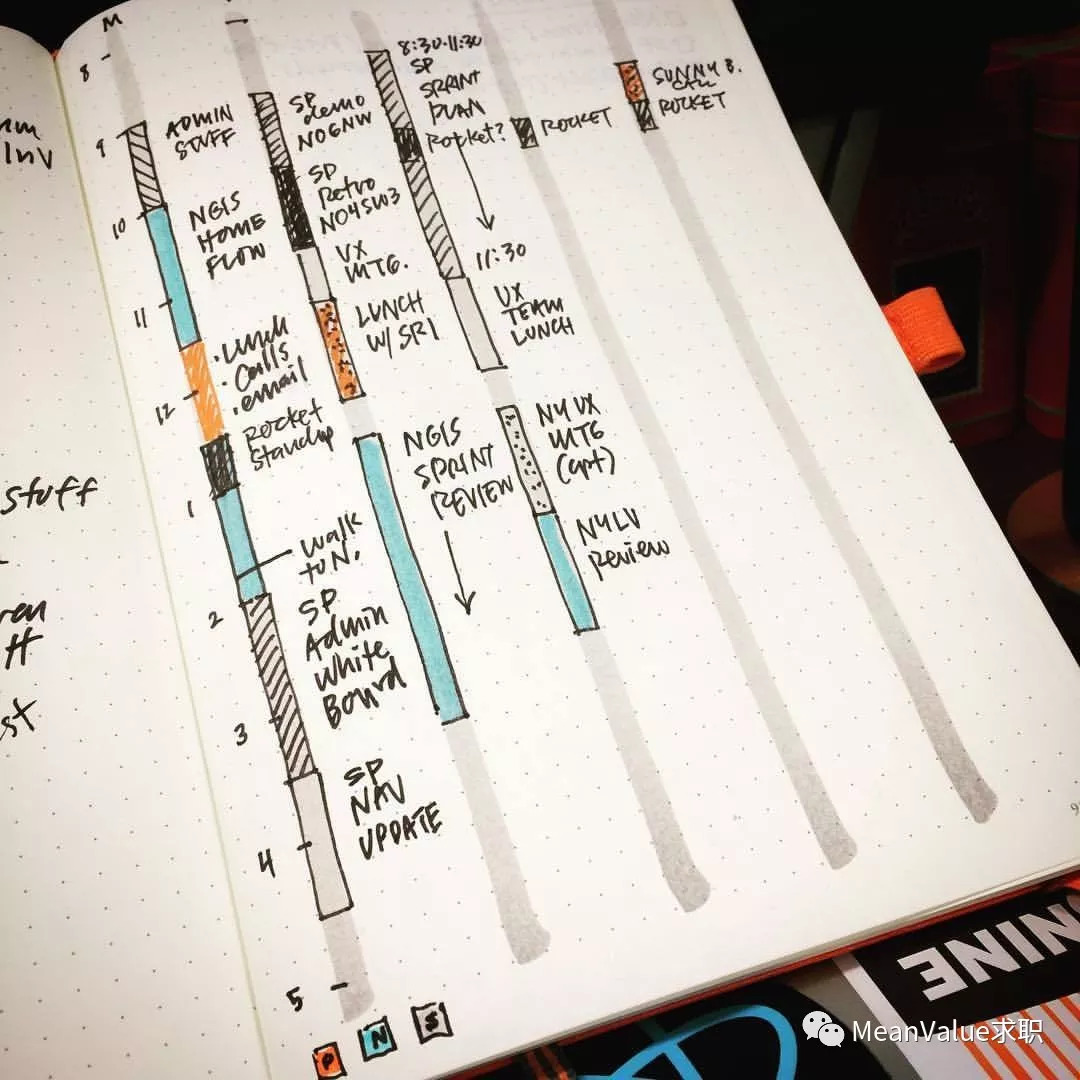 Inv
stuff
st
M
8
9
10
11
12
1
2
3
4
5
ADMIN
STUFF
NGIS
HOME
FLOW
• Lunch
• Calls
• email
Rocket
Standup
walk
to N.
SP
Admin
White
Board
SP
NAV
UPDATE
SP
demo
NO6NW
SP
Retro
NO4SW3
UX
MTG.
LUNCH
W/ SRI
NGIS
SPRINT
REVIEW
8:30-11:30
SP
SPRINT
PLAN
Rocket?
11:30
UX
TEAM
LUNCH
NY UX
MTG
(apt)
NYLV
Review
ROCKET
SUNNY B.
CALL
ROCKET
P N S
9
NINE
MeanValue求职